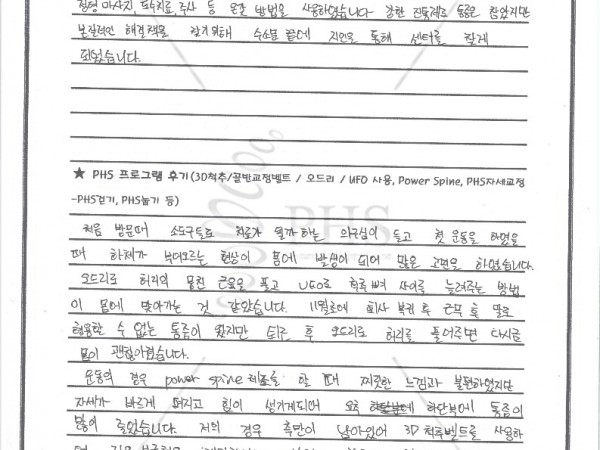 정형 마사지, 도수치료, 주사 등 온갖 방법을 사용하였습니다. 강한 진통제로 통증은 참았지만
본질적인 해결책을 찾기위해 수소문 끝에 지인을 통해 센터를 찾게
되었습니다.
★ PHS 프로그램 후기(3D척추/골반교정벨트 / 오드리 / UFO 사용, Power Spine, PHS자세교정
-PHS걷기, PHS눕기 등)
처음 방문때 소도구들로 치료가 될까 하는 의구심이 들고 첫 운동을 하였을
때 하체가 부어오르는 현상이 몸에 발생이 되어 많은 고민을 하였습니다.
오드리로 허리의 뭉친 근육을 풀고 UFO로 척추뼈 사이를 늘려주는 방법
이 몸에 맞아가는 것 같았습니다. 11월초에 회사 복귀 후 근무 후 말로
형용할 수 없는 통증이 왔지만 퇴근 후 오드리로 허리를 풀어주면 다시금
몸이 괜찮아졌습니다.
운동의 경우 power spine 체조를 할 때 찌릿한 느낌과 불편하였지만
자세가 바르게 펴지고 힘이 생기게되어 하단부에 통증이
많이 줄었습니다. 저의 경우 측만이 남아있어 3D 척추벨트를 사용하
PHS